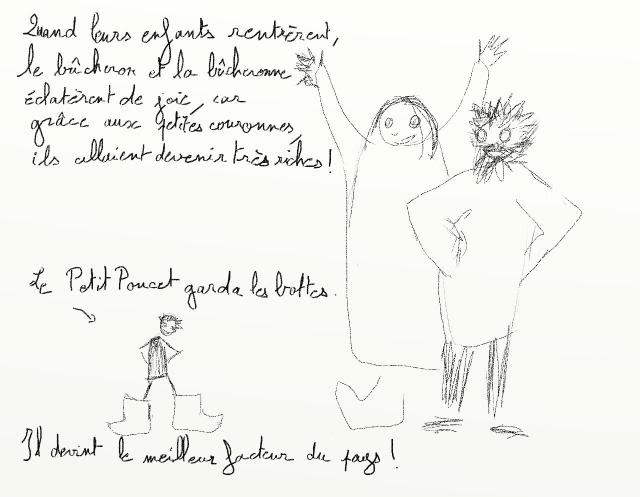 Quand leurs enfants rentrèrent,
le bûcheron et la bûcheronne
éclatèrent de joie, car
grâce aux petites couronnes,
ils allaient devenir très riches !
Le Petit Poucet garda les bottes.
Il devint le meilleur facteur du pays !